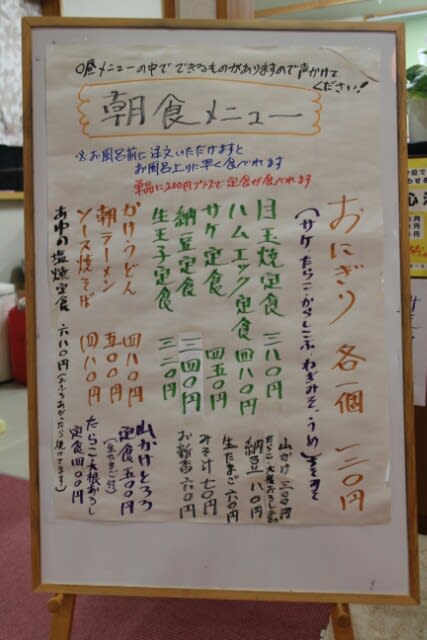 ○昼メニューの中でできるものがありますので声かけて
ください!
朝食メニュー
※お風呂前に注文いただけますと
お風呂上りに早く食べれます
単品に200円プラスで定食が食べれます
おにぎり 各一個 一三〇円
(サケ・たらこ・からしこぶ・ねぎみそ・うめ)
目玉焼定食 三八〇円
ハムエッグ定食 四八〇円
サケ定食 四五〇円
納豆定食 三四〇円
生玉子定食 三二〇円
かけ・うどん 四八〇円
朝ラーメン 五〇〇円
ソース焼そば 四八〇円
あゆの塩焼定食 六八〇円(おふろあがったら焼けてます)
山かけ 三〇〇円
納豆 一八〇円
生たまご 六〇円
みそ汁 七〇円
お新香 六〇円
山かけとろろ
定食 五〇〇円
(生たまご付)
たらこ・大根おろし
定食 四〇〇円